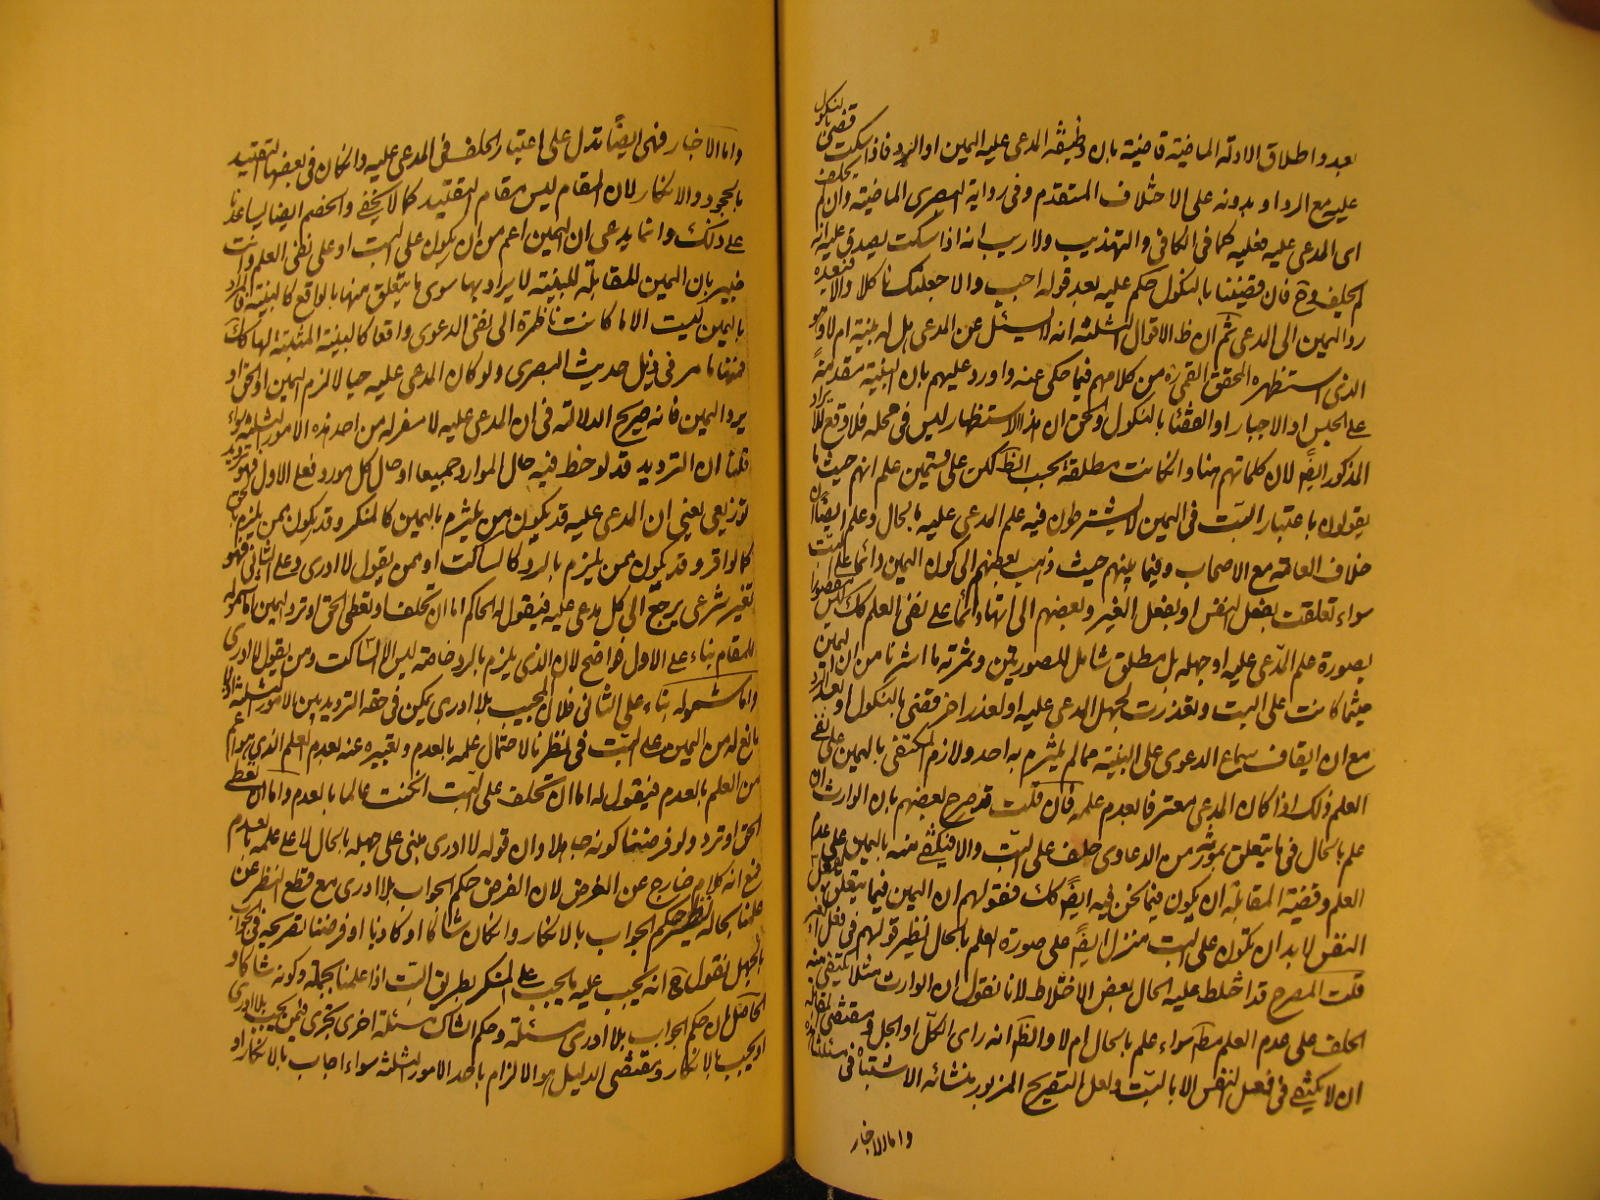 بعد واطلاق الادلة الماضية قاضية بان وظيفة المدعى عليه اليمين او الرد فاذا سكت قضى بالنكول
عليه مع الرد او بدونه على الاختلاف المتقدم وفى رواية البصرى الماضية وان لم يحلف
اى المدعى عليه فعليه كما فى الكافى والتهذيب ولا ريب انه اذا سكت يصدق عليه انه
لم يحلف وح فان قضينا بالنكول حكم عليه بعد قوله اجب والا جعلتك ناكلا والا فبعده
رد اليمين الى المدعى ثم ان ظ الاقوال الثلثة انه لا يسئل عن المدعى هل له بينة ام لا وهو
الذى استظهره المحقق القمى ره من كلامهم فيما حكى عنه واورد عليهم بان البينة مقدمة
على الحبس او الاجبار او القضاء بالنكول والحق ان هذا الاستظهار ليس فى محله فلا وقع للايراد
المذكور ايض لان كلماتهم هنا وان كانت مطلقة بحسب الظ لكن على قسمين علم انهم حيث
يقولون باعتبار البت فى اليمين لا يشترطون فيه علم المدعى عليه بالحال وعلم ايضا ان
خلاف العامة مع الاصحاب وفيما بينهم حيث ذهب بعضهم الى كون اليمين دائما على البت
سواء تعلقت بفعل النفس او بفعل الغير وبعضهم الى انها دائما على نفى العلم كك ليس مقصورا
بصورة علم المدعى عليه او جهله بل مطلق شامل للصورتين وثمرته ما اشرنا من ان اليمين
حيثما كانت على البت وتعذرت لجهل المدعى عليه او لعذر اخر قضى بالنكول او بعد الرد
مع ان ايقاف سماع الدعوى على البينة مما لم يلتزم به احد ولازم المكتفى باليمين على نفى
العلم ذلك اذا كان المدعى معترفا بعدم علمه فان قلت قد صرح بعضهم بان الوارث ان
علم بالحال فى ما يتعلق بمورثه من الدعاوى حلف على البت والا فيكتفى منه باليمين على عدم
العلم وقضية المقابلة ان يكون فيما نحن فيه ايض كك فقولهم ان اليمين فيما يتعلق بفعل
النفس لا بد ان تكون على البت منزل ايض على صورة العلم بالحال نظير قولهم فى فعل الغير
قلت المصرح قد اختلط عليه الحال بعض الاختلاط لانا نقول ان الوارث مثلا يكتفى منه
الحلف على عدم العلم مط سواء علم بالحال ام لا والظ انه راى الكل او الجل ومقتضى المقابلة
ان لا يكتفى فى فعل النفس الا بالبت ولعل التصريح المزبور منشائه الاشتباه فى
واما الاخبار
واما الاخبار فهى ايضا تدل على اعتبار الحلف فى المدعى عليه وان كان فى بعضها التقييد
بالجحود والانكار لان المقام ليس مقام التقييد كما لا يخفى والخصم ايضا يساعدنا
على ذلك وانما يدعى ان اليمين اعم من ان يكون على البت او على نفى العلم وانت
خبير بان اليمين المقابلة للبينة لا يراد بها سوى ما يتعلق منها بالواقع كالبينة فالمراد
باليمين ليست الا ما كانت ناظرة الى نفى الدعوى واقعا كالبينة المثبتة لها كك
فمنها ما مر فى ذيل حديث البصرى ولو كان المدعى عليه حيا لالزم اليمين او الحق او
يرد اليمين فانه صريح الدلالة فى ان المدعى عليه لا مفر له من احد هذه الامور الثلثة سواء
قلنا ان الترديد قد لوحظ فيه حال الموارد جميعا او حال كل مورد فعلى الاول فهو ترديد
توزيعى يعنى ان المدعى عليه قد يكون ممن يلتزم باليمين كالمنكر وقد يكون ممن يلتزم بالحق
كما لو اقر وقد يكون ممن يلتزم بالرد كالساكت او ممن يقول لا ادرى وعلى الثانى فهو
تخيير شرعى يرجع الى كل مدعى عليه فيقول له الحاكم اما ان تحلف او تعطى الحق او ترد اليمين اما شموله
للمقام بناء على الاول فواضح لان الذى يلتزم بالرد خاصة ليس الا الساكت ومن يقول لا ادرى
واما شموله بناء على الثانى فلان المجيب بلا ادرى يمكن فى حقه الترديد بين الامور الثلثة اذ لا
مانع له من اليمين على البت فى نظرنا لاحتمال علمه بالعدم وتعبيره عنه بعدم العلم الذى هو اعم
من العلم بالعدم فيقول له اما ان تحلف على البت ان كنت عالما بالعدم واما ان تعطى
الحق او ترد ولو فرضنا كونه جاهلا وان قوله لا ادرى مبنى على جهله بالحال لا على علمه بالعدم
فمع انه كلام خارج عن الغرض لان الغرض حكم الجواب بلا ادرى مع قطع النظر عن
علمنا بحاله نظير حكم الجواب بالانكار وان كان شاكا او كاذبا او فرضنا تصريحه فى الجواب
بالجهل نقول ح انه يجب عليه ما يجب على المنكر بطريق البت اذا علمنا بجهله وكونه شاكا و
الحاصل ان حكم الجواب بلا ادرى مسئلة وحكم الشاك مسئلة اخرى تجرى فيمن يجيب بلا ادرى
او يجيب بالانكار ومقتضى الدليل هو الالزام باحد الامور الثلثة سواء اجاب بالانكار او